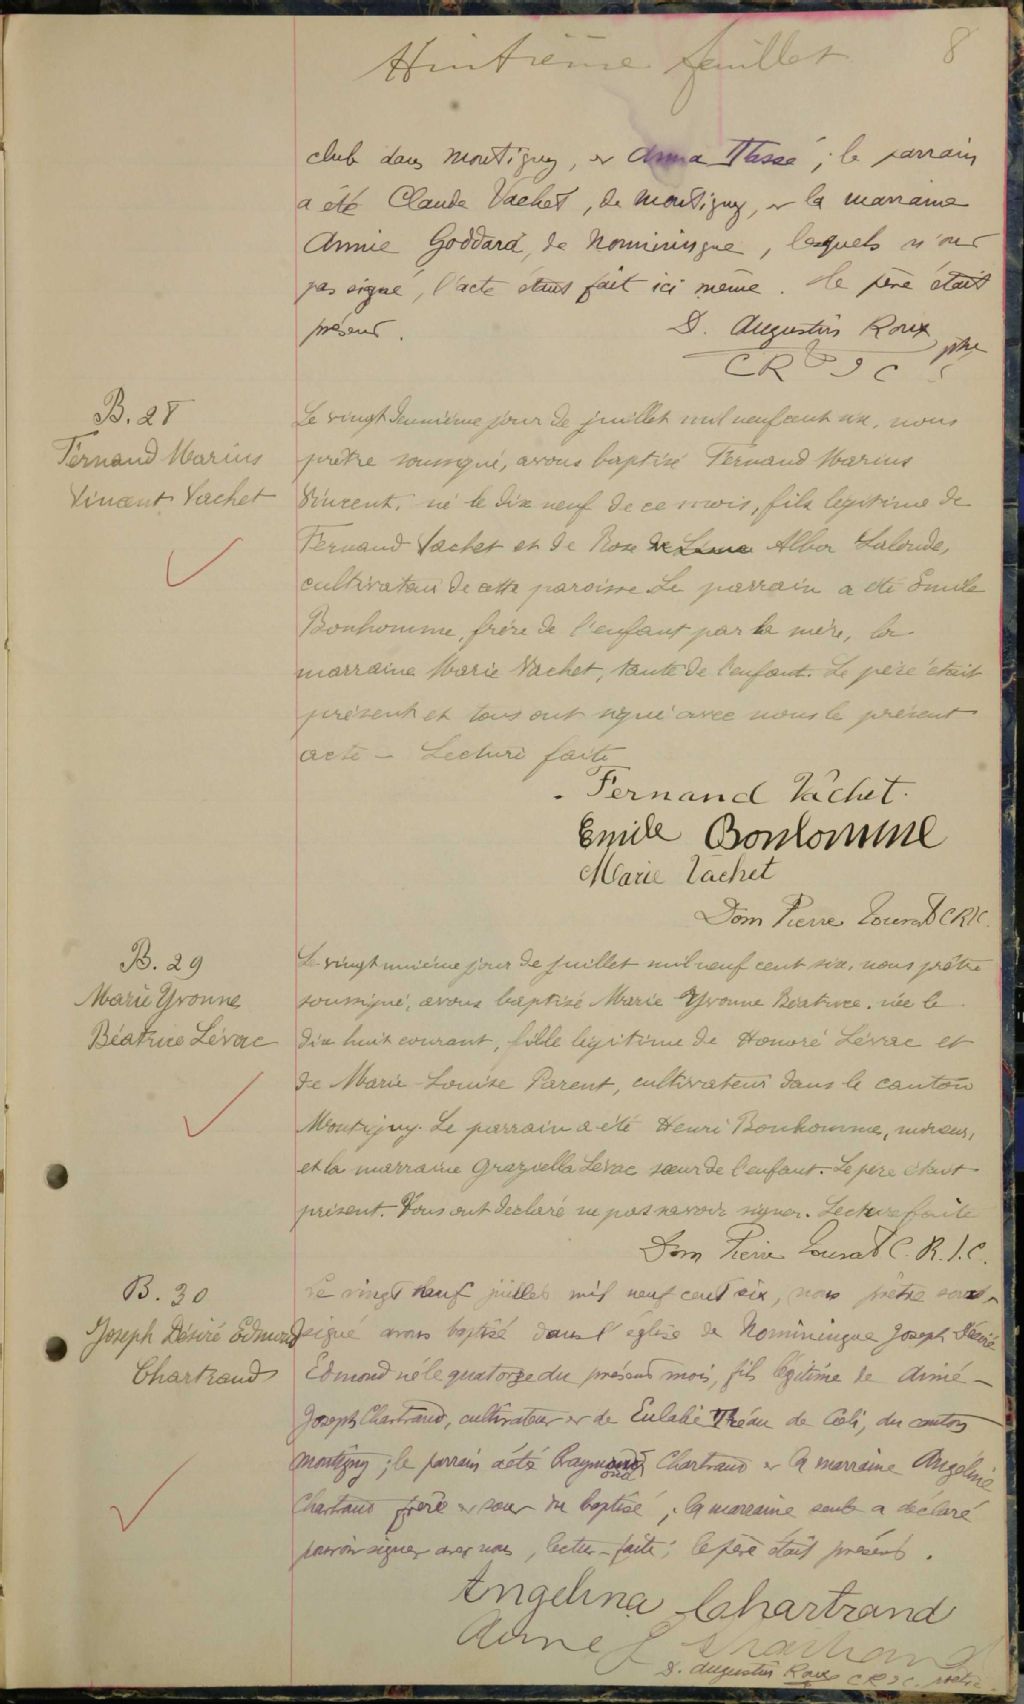 Huitième feuillet 8
club dans Montigny, et Anna Tassé ; le parrain
a été Claude Vachet, de Montigny, et la marraine
Annie Goddard, de Nominingue, lesquels n'ont
pas signé, l'acte étant fait ici même. Le père était
présent. D. Augustin Roux ptre
C R I C
B. 28
Fernand Marius
Vincent Vachet
Le vingt deuxième jour de juillet mil neuf cent six, nous
prêtre soussigné, avons baptisé Fernand Marius
Vincent, né le dix neuf de ce mois, fils légitime de
Fernand Vachet et de Rose Alba Lalonde,
cultivateur de cette paroisse. Le parrain a été Emile
Bonhomme, frère de l'enfant par la mère, la
marraine Marie Vachet, tante de l'enfant. Le père était
présent et tous ont signé avec nous le présent
acte – Lecture faite
Fernand Vachet.
Emile Bonhomme
Marie Vachet
Dom Pierre CRIC.
B. 29
Marie Yvonne
Béatrice Lévac
Le vingt unième jour de juillet mil neuf cent six, nous prêtre
soussigné, avons baptisé Marie Yvonne Béatrice, née le
dix huit courant, fille légitime de Honoré Lévac et
de Marie-Louise Parent, cultivateur dans le canton
Montigny. Le parrain a été Henri Bonhomme, mineur,
et la marraine Graziella Lévac sœur de l'enfant. Le père était
présent. Tous ont déclaré ne pas savoir signer. Lecture faite
Dom Pierre C. R. I. C.
B. 30
Joseph Désiré Edmond
Chartrand
Le vingt neuf juillet mil neuf cent six, nous prêtre sous-
signé avons baptisé dans l'église de Nominingue Joseph Désiré
Edmond né le quatorze du présent mois, fils légitime de Aimé-
Joseph Chartrand, cultivateur et de Eulalie de Celi, du canton
Montigny ; le parrain a été Raymond Chartrand et la marraine Angélina
Chartrand frère et sœur du baptisé ; la marraine seule a déclaré
pouvoir signer avec nous, lecture faite ; le père était présent.
Angelina Chartrand
Aimé J Chartrand
D. Augustin Roux C R I C.